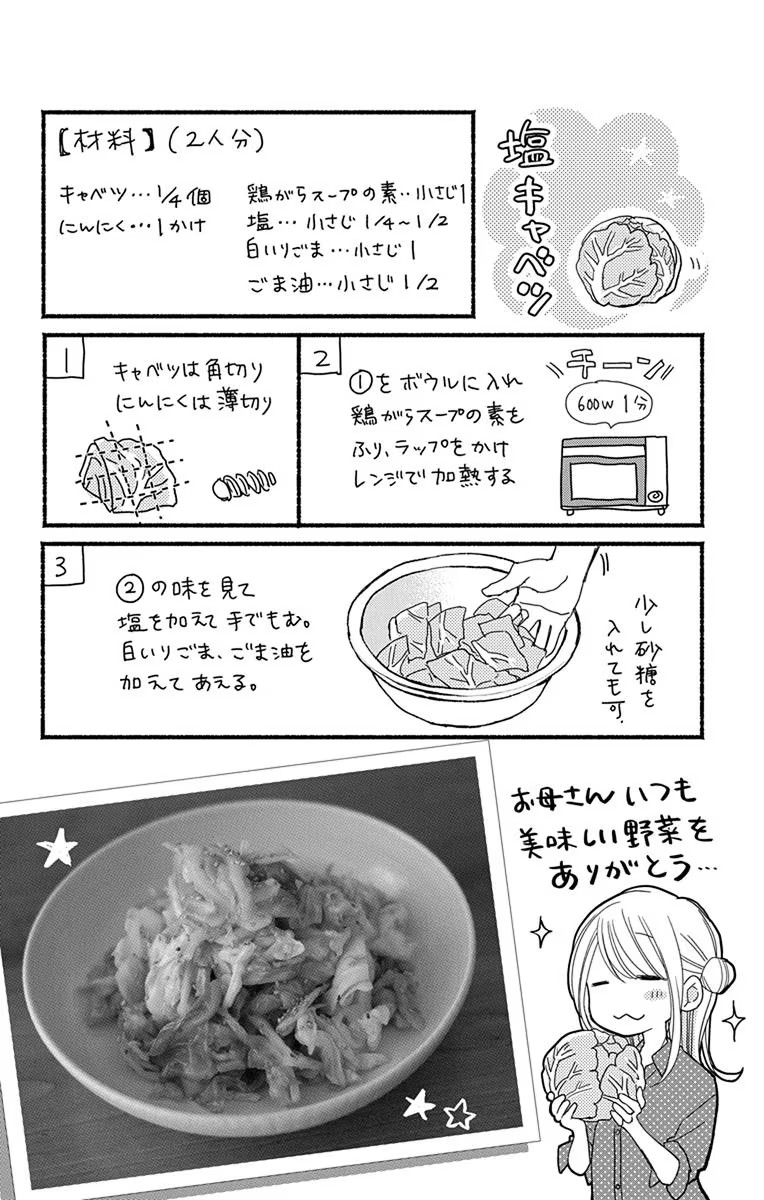 塩キャベツ
【材料】(2人分)
キャベツ…1/4個
にんにく…1かけ
鶏がらスープの素‥小さじ1
塩…小さじ1/4～1/2
白いりごま…小さじ1
ごま油…小さじ1/2
1
キャベツは角切り
にんにくは薄切り
2
①をボウルに入れ
鶏がらスープの素を
ふり、ラップをかけ
レンジで加熱する
チーン
600W 1分
3
②の味を見て
塩を加えて手でもむ。
白いりごま、ごま油を
加えてあえる。
少し砂糖を
入れても可.
お母さんいつも
美味しい野菜を
ありがとう…